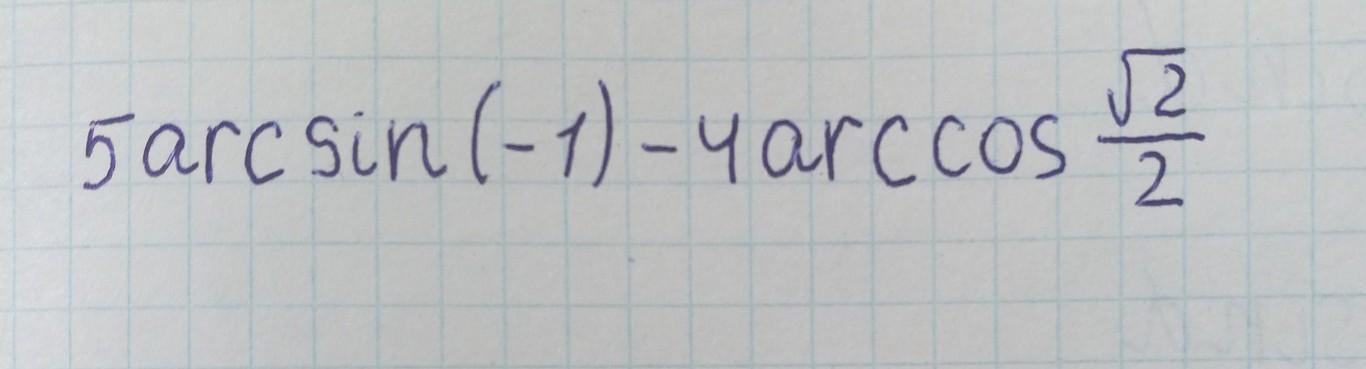 5 arcsin(-1) - 4 arccos √2/2